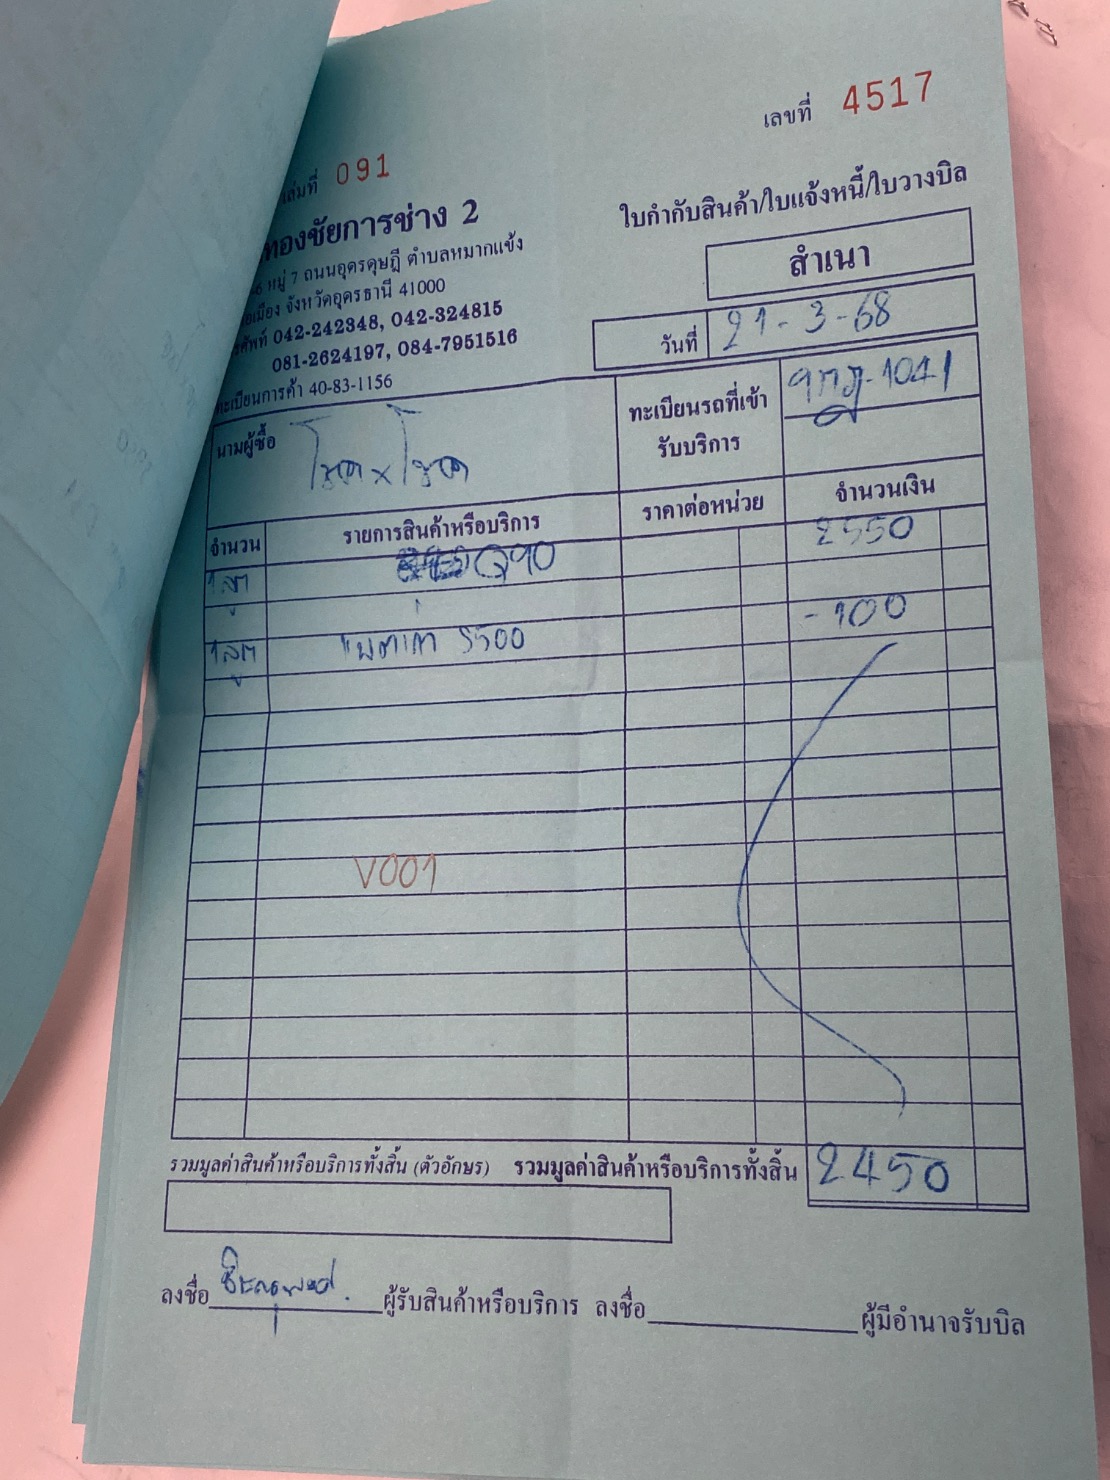 เล่มที่ 091
เลขที่ 4517
ทองชัยการช่าง 2
หมู่ 7 ถนนอุดรดุษฎี ตำบลหมากแข้ง
เมือง จังหวัดอุดรธานี 41000
042-242348, 042-324815
081-2624197, 084-7951516
ทะเบียนการค้า 40-83-1156
ใบกำกับสินค้า/ใบแจ้งหนี้/ใบวางบิล
สำเนา
วันที่ 21-3-68
นามผู้ซื้อ โชค x โชค
ทะเบียนรถที่เข้ารับบริการ 1041
จำนวน รายการสินค้าหรือบริการ ราคาต่อหน่วย จำนวนเงิน
1 ลูก Q90 2550
1 ลูก แบตเก่า S500 -100
V001
รวมมูลค่าสินค้าหรือบริการทั้งสิ้น (ตัวอักษร) รวมมูลค่าสินค้าหรือบริการทั้งสิ้น 2450
ลงชื่อ ผู้รับสินค้าหรือบริการ ลงชื่อ ผู้มีอำนาจรับบิล